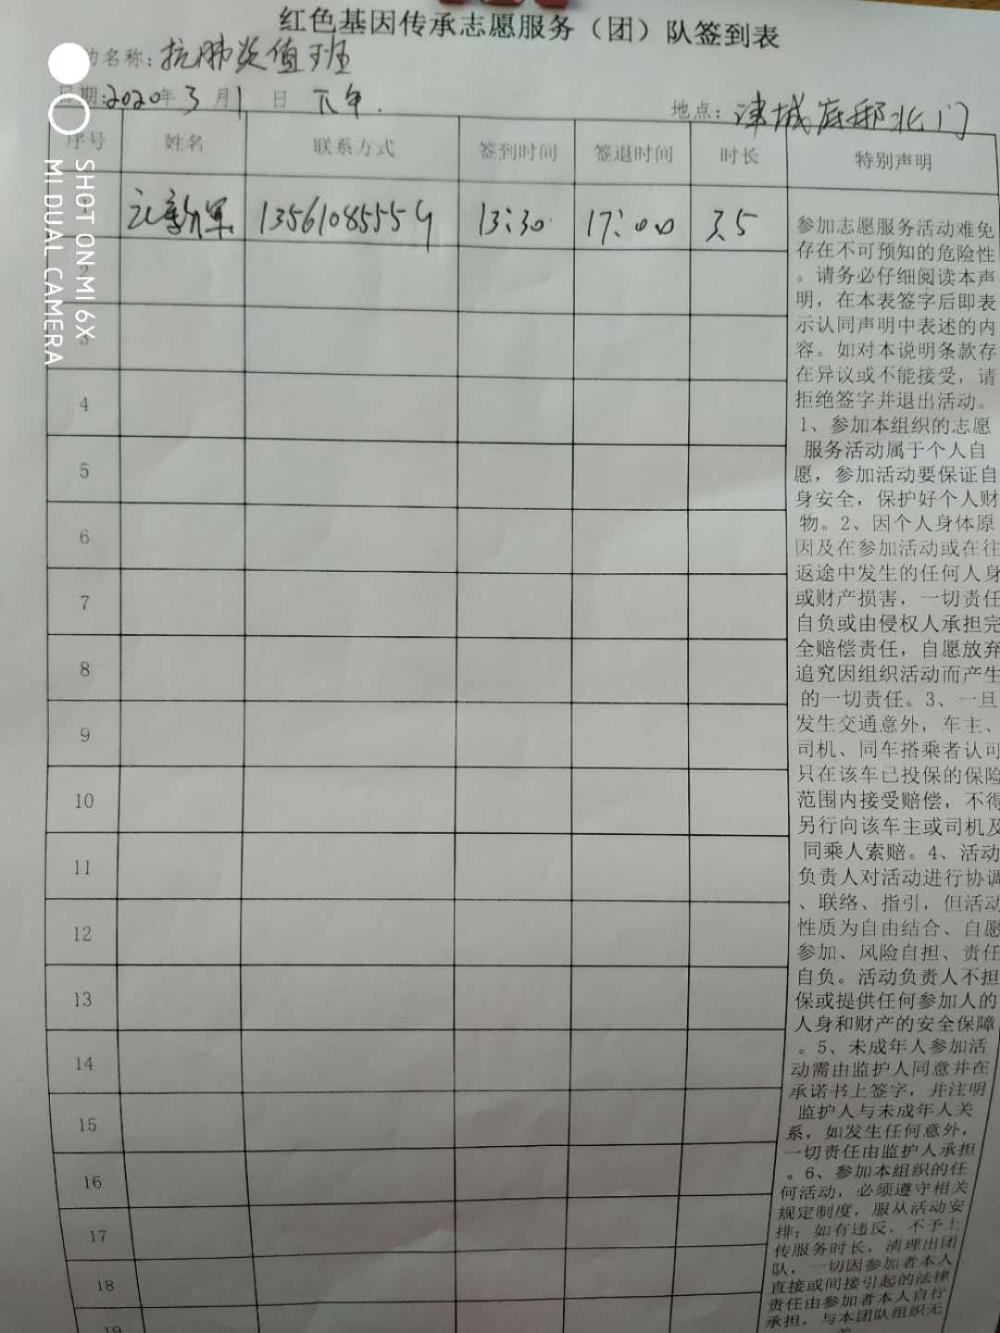 红色基因传承志愿服务（团）队签到表
动名称：抗肺炎值班
日期：2020年3月1日 下午.
地点：津城府邸北门
序号 姓名 联系方式 签到时间 签退时间 时长 特别声明
新军 13561085554 13:30 17:00 3.5
2
3
4
5
6
7
8
9
10
11
12
13
14
15
16
17
18
19
参加志愿服务活动难免
存在不可预知的危险性
。请务必仔细阅读本声
明，在本表签字后即表
示认同声明中表述的内
容。如对本说明条款存
在异议或不能接受，请
拒绝签字并退出活动。
1、参加本组织的志愿
服务活动属于个人自
愿，参加活动要保证自
身安全，保护好个人财
物。2、因个人身体原
因及在参加活动或在往
返途中发生的任何人身
或财产损害，一切责任
自负或由侵权人承担完
全赔偿责任，自愿放弃
追究因组织活动而产生
的一切责任。3、一旦
发生交通意外，车主、
司机、同车搭乘者认可
只在该车已投保的保险
范围内接受赔偿，不得
另行向该车主或司机及
同乘人索赔。4、活动
负责人对活动进行协调
、联络、指引，但活动
性质为自由结合、自愿
参加、风险自担、责任
自负。活动负责人不担
保或提供任何参加人的
人身和财产的安全保障
。5、未成年人参加活
动需由监护人同意并在
承诺书上签字，并注明
监护人与未成年人关
系，如发生任何意外，
一切责任由监护人承担
。6、参加本组织的任
何活动，必须遵守相关
规定制度，服从活动安
排；如有违反，不予上
传服务时长，清理出团
队，一切因参加者本人
直接或间接引起的法律
责任由参加者本人自行
承担，与本团队组织无
SHOT ON MI 6X
MI DUAL CAMERA